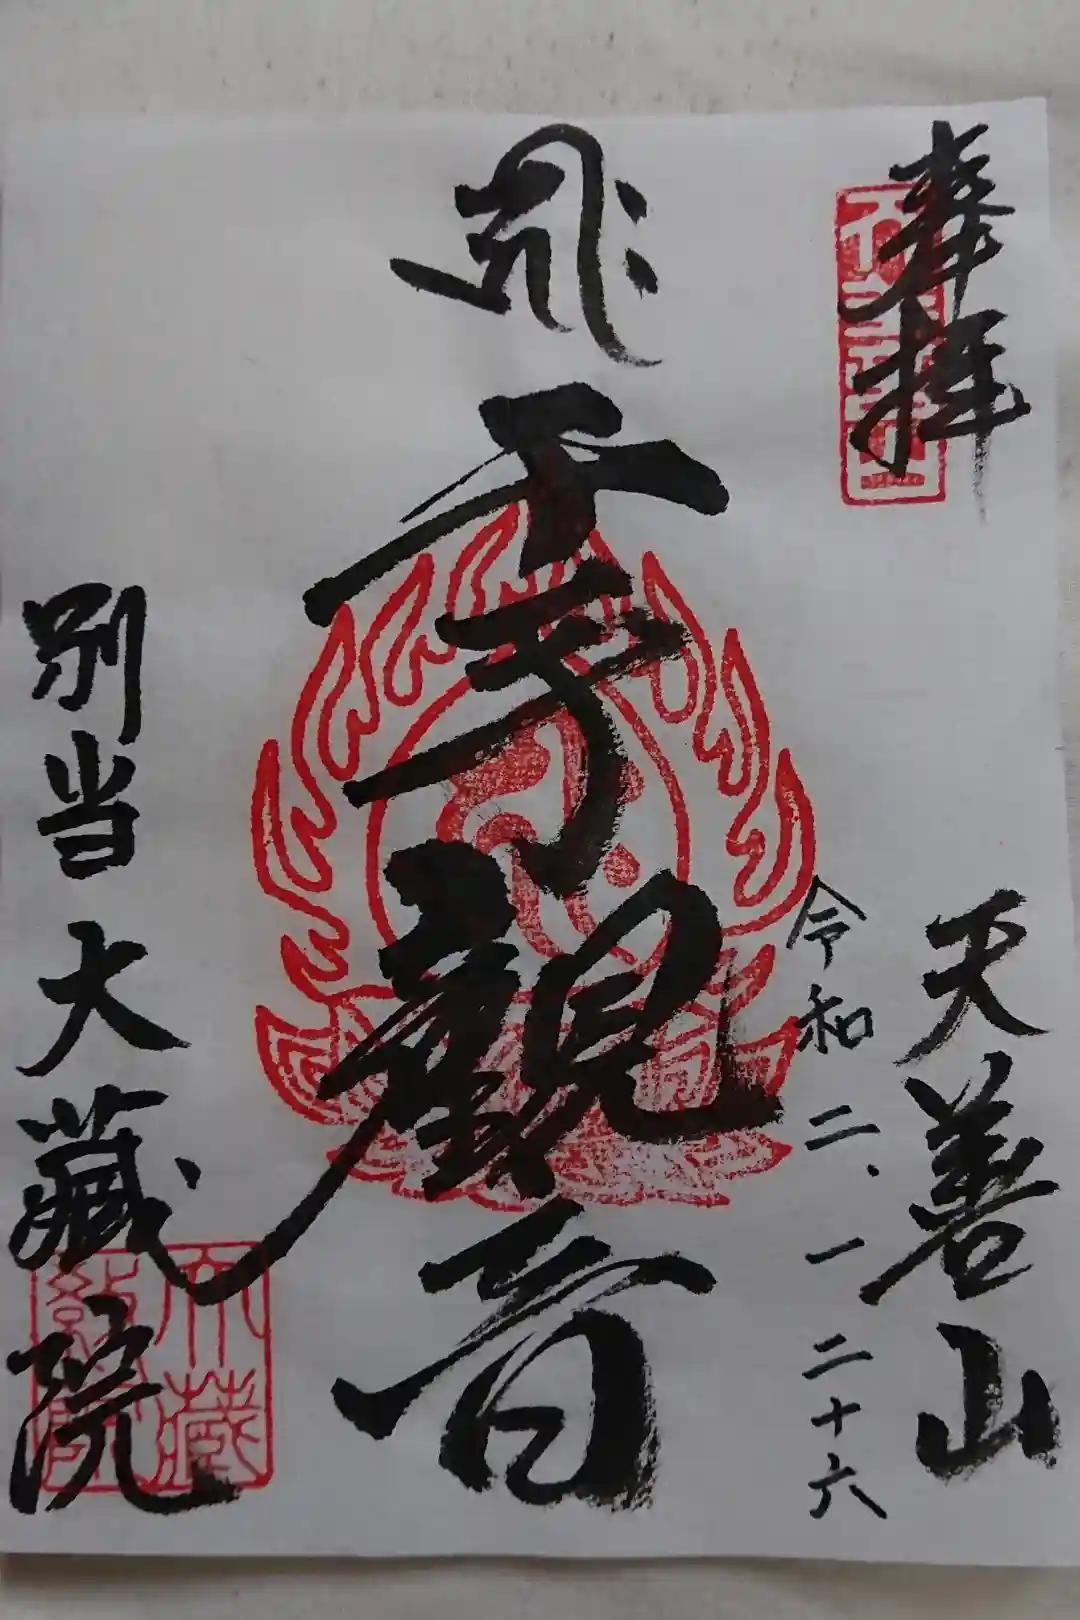 奉拝
天善山
令和二.一.二十六
千手観音
別当大蔵院